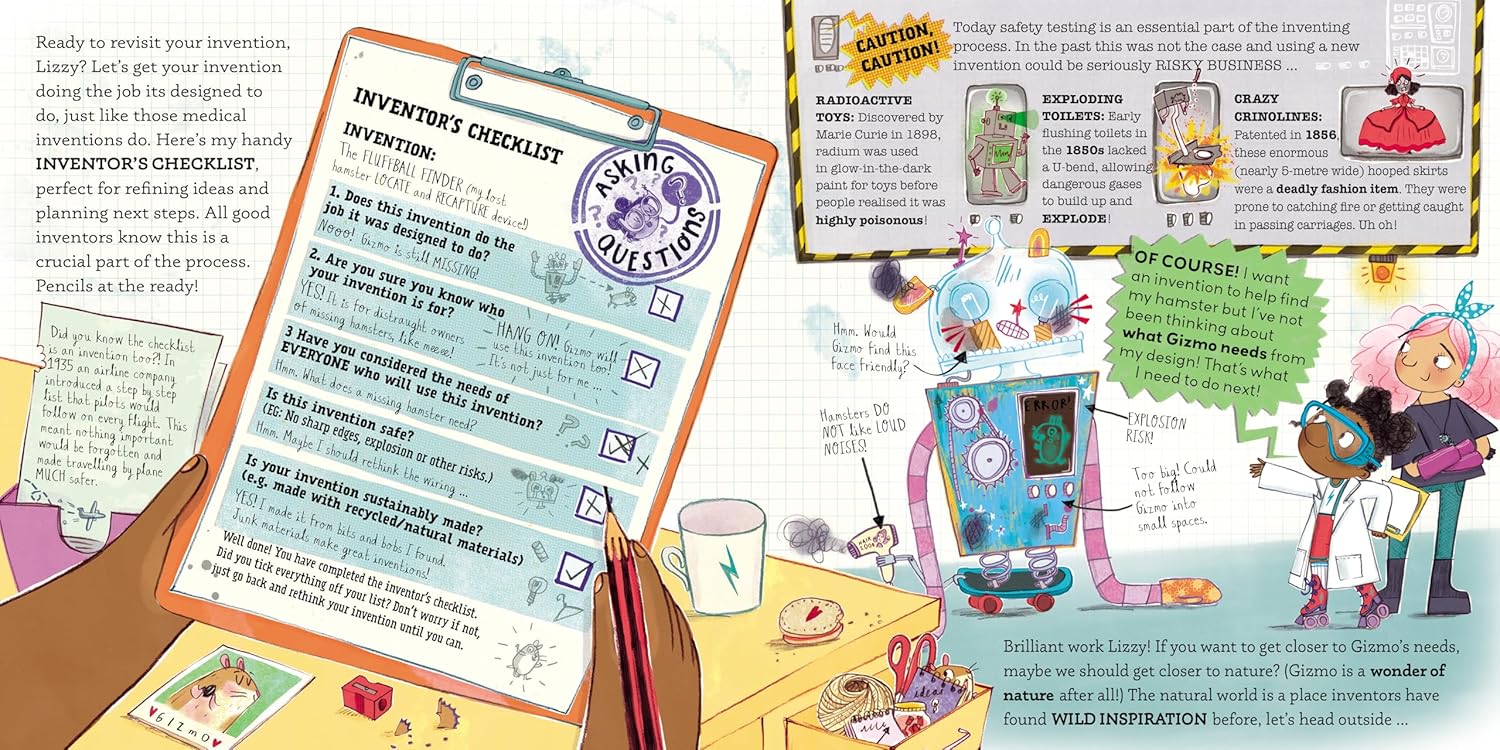 Ready to revisit your invention,
Lizzy? Let's get your invention
doing the job its designed to
do, just like those medical
inventions do. Here's my handy
INVENTOR'S CHECKLIST,
perfect for refining ideas and
planning next steps. All good
inventors know this is a
crucial part of the process.
Pencils at the ready!
Did you know the checklist
is an invention too?! In
1935 an airline company
introduced a step by step
list that pilots would
follow on every flight. This
meant nothing important
would be forgotten and
made travelling by plane
MUCH safer.
INVENTOR'S CHECKLIST
INVENTION:
The FLUFFBALL FINDER (my lost
hamster LOCATE and RECAPTURE device!)
ASKING
QUESTIONS
1. Does this invention do the
job it was designed to do?
Nooo! Gizmo is still MISSING!
2. Are you sure you know who
your invention is for?
YES! It is for distraught owners
of missing hamsters, like meeee!
HANG ON! Gizmo will
use this invention too!
It's not just for me ...
3 Have you considered the needs of
EVERYONE who will use this invention?
Hmm. What does a missing hamster need?
Is this invention safe?
(EG: No sharp edges, explosion or other risks.)
Hmm. Maybe I should rethink the wiring ...
Is your invention sustainably made?
(e.g. made with recycled/natural materials)
YES! I made it from bits and bobs I found.
Junk materials make great inventions!
Well done! You have completed the inventor's checklist.
Did you tick everything off your list? Don't worry if not,
just go back and rethink your invention until you can.
GIZMO
CAUTION,
CAUTION!
Today safety testing is an essential part of the inventing
process. In the past this was not the case and using a new
invention could be seriously RISKY BUSINESS ...
RADIOACTIVE
TOYS: Discovered by
Marie Curie in 1898,
radium was used
in glow-in-the-dark
paint for toys before
people realised it was
highly poisonous!
EXPLODING
TOILETS: Early
flushing toilets in
the 1850s lacked
a U-bend, allowing
dangerous gases
to build up and
EXPLODE!
CRAZY
CRINOLINES:
Patented in 1856,
these enormous
(nearly 5-metre wide) hooped skirts
were a deadly fashion item. They were
prone to catching fire or getting caught
in passing carriages. Uh oh!
OF COURSE! I want
an invention to help find
my hamster but I've not
been thinking about
what Gizmo needs from
my design! That's what
I need to do next!
Hmm. Would
Gizmo find this
face friendly?
Hamsters DO
NOT like LOUD
NOISES!
ERROR!
EXPLOSION
RISK!
Too big! Could
not follow
Gizmo into
small spaces.
HAIR
ideas
Brilliant work Lizzy! If you want to get closer to Gizmo's needs,
maybe we should get closer to nature? (Gizmo is a wonder of
nature after all!) The natural world is a place inventors have
found WILD INSPIRATION before, let's head outside ...